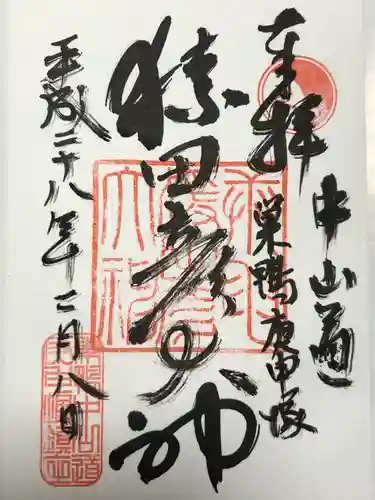 奉拝
中山道
巣鴨庚申塚
猿田彦大神
平成二十八年二月八日